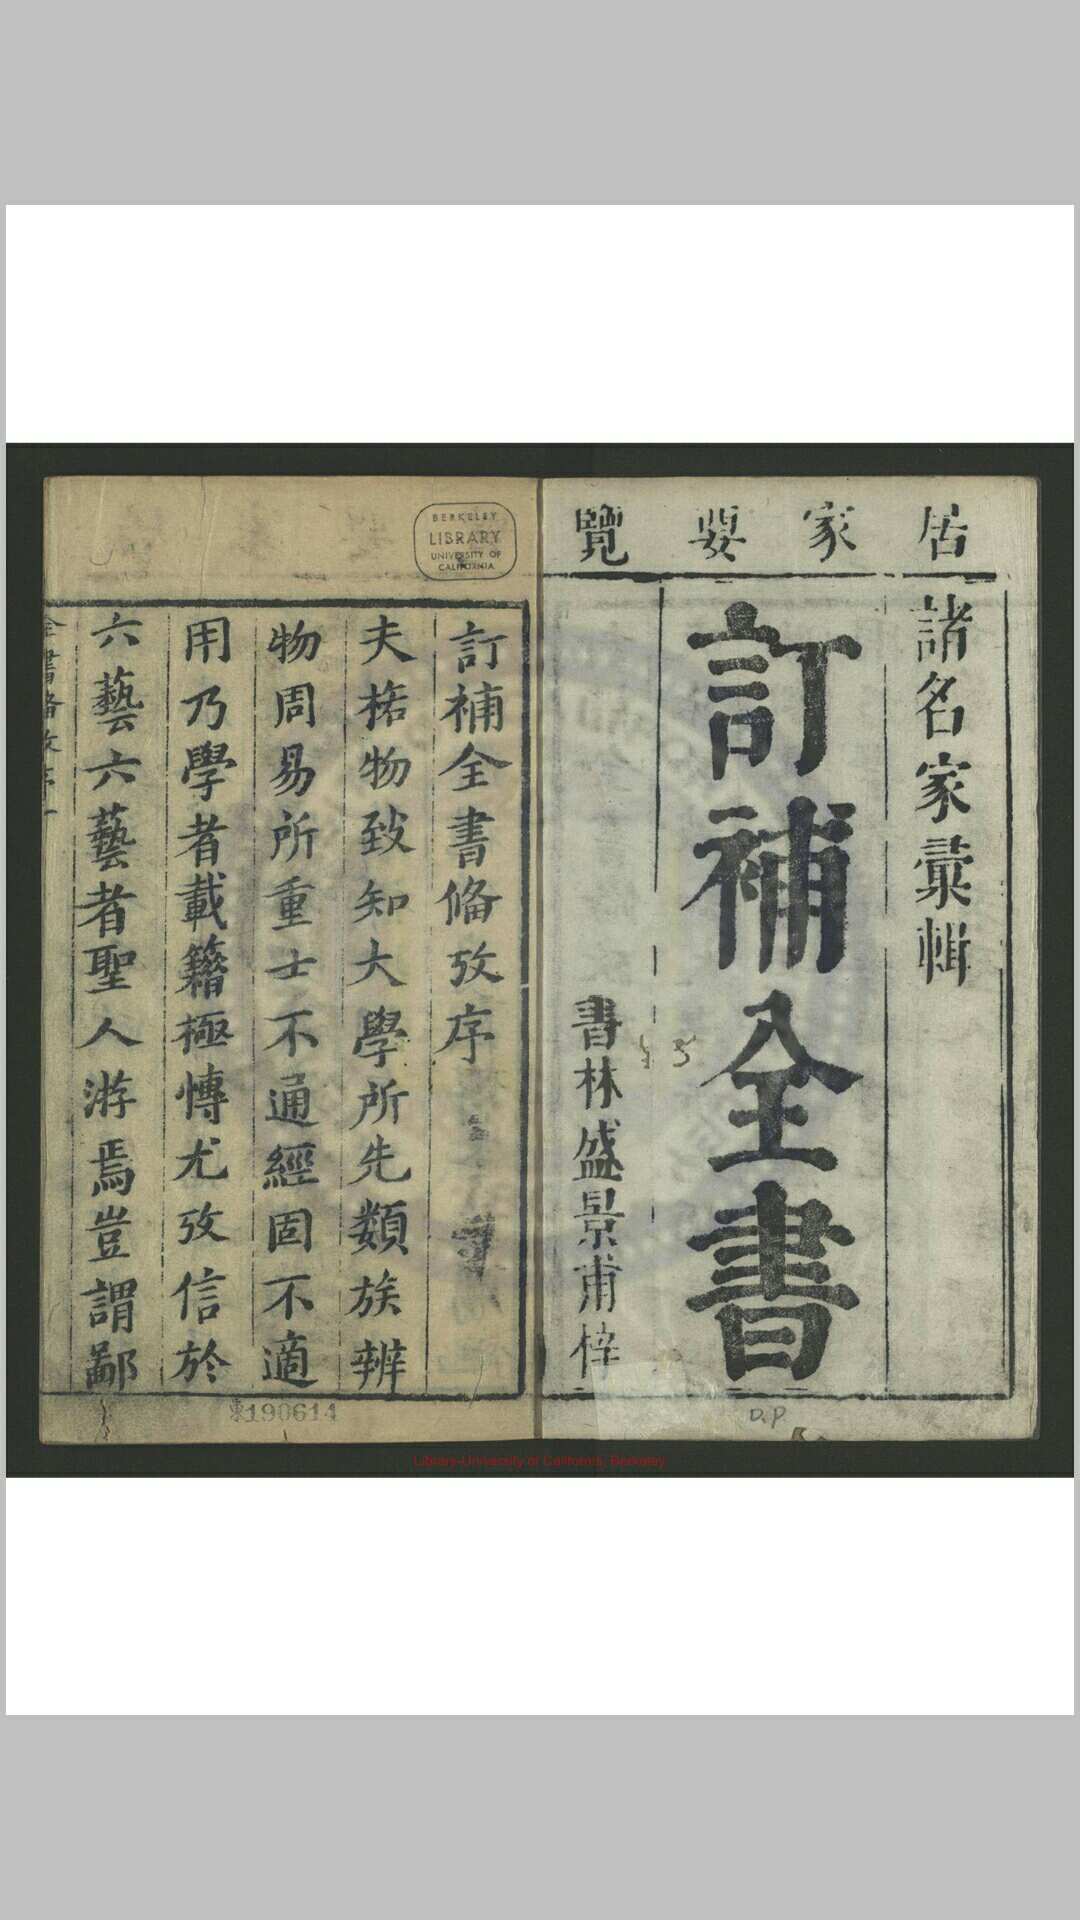 居家要覽
諸名家彙輯
訂補全書
書林盛景甫梓
D.P
BERKELEY
LIBRARY
UNIVERSITY OF
CALIFORNIA
訂補全書偹攷序
夫格物致知大學所先類族辨
物周易所重士不通經固不適
用乃學者載籍極愽尤攷信於
六藝六藝者聖人游焉豈謂鄙
全書偹攷序一
東190614
Library-University of California, Berkeley